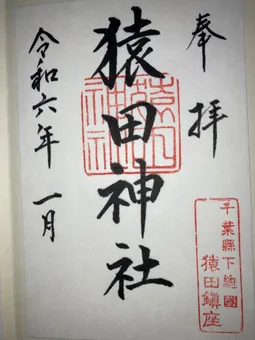 奉拝
千葉縣下總國
猿田鎮座
猿田神社
令和六年 一月